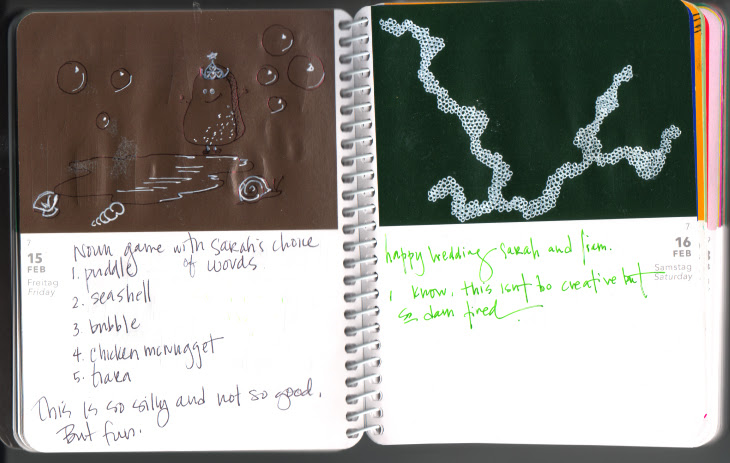 7
15
FEB
Freitag
Friday
Noun game with Sarah's choice
of words.
1. puddle
2. seashell
3 bubble
4. chicken mcnugget
5. tiara
This is so silly and not so good.
But fun.
7
16
FEB
Samstag
Saturday
happy wedding Sarah and Liam.
I know, this isn't bo creative but
so damn tired